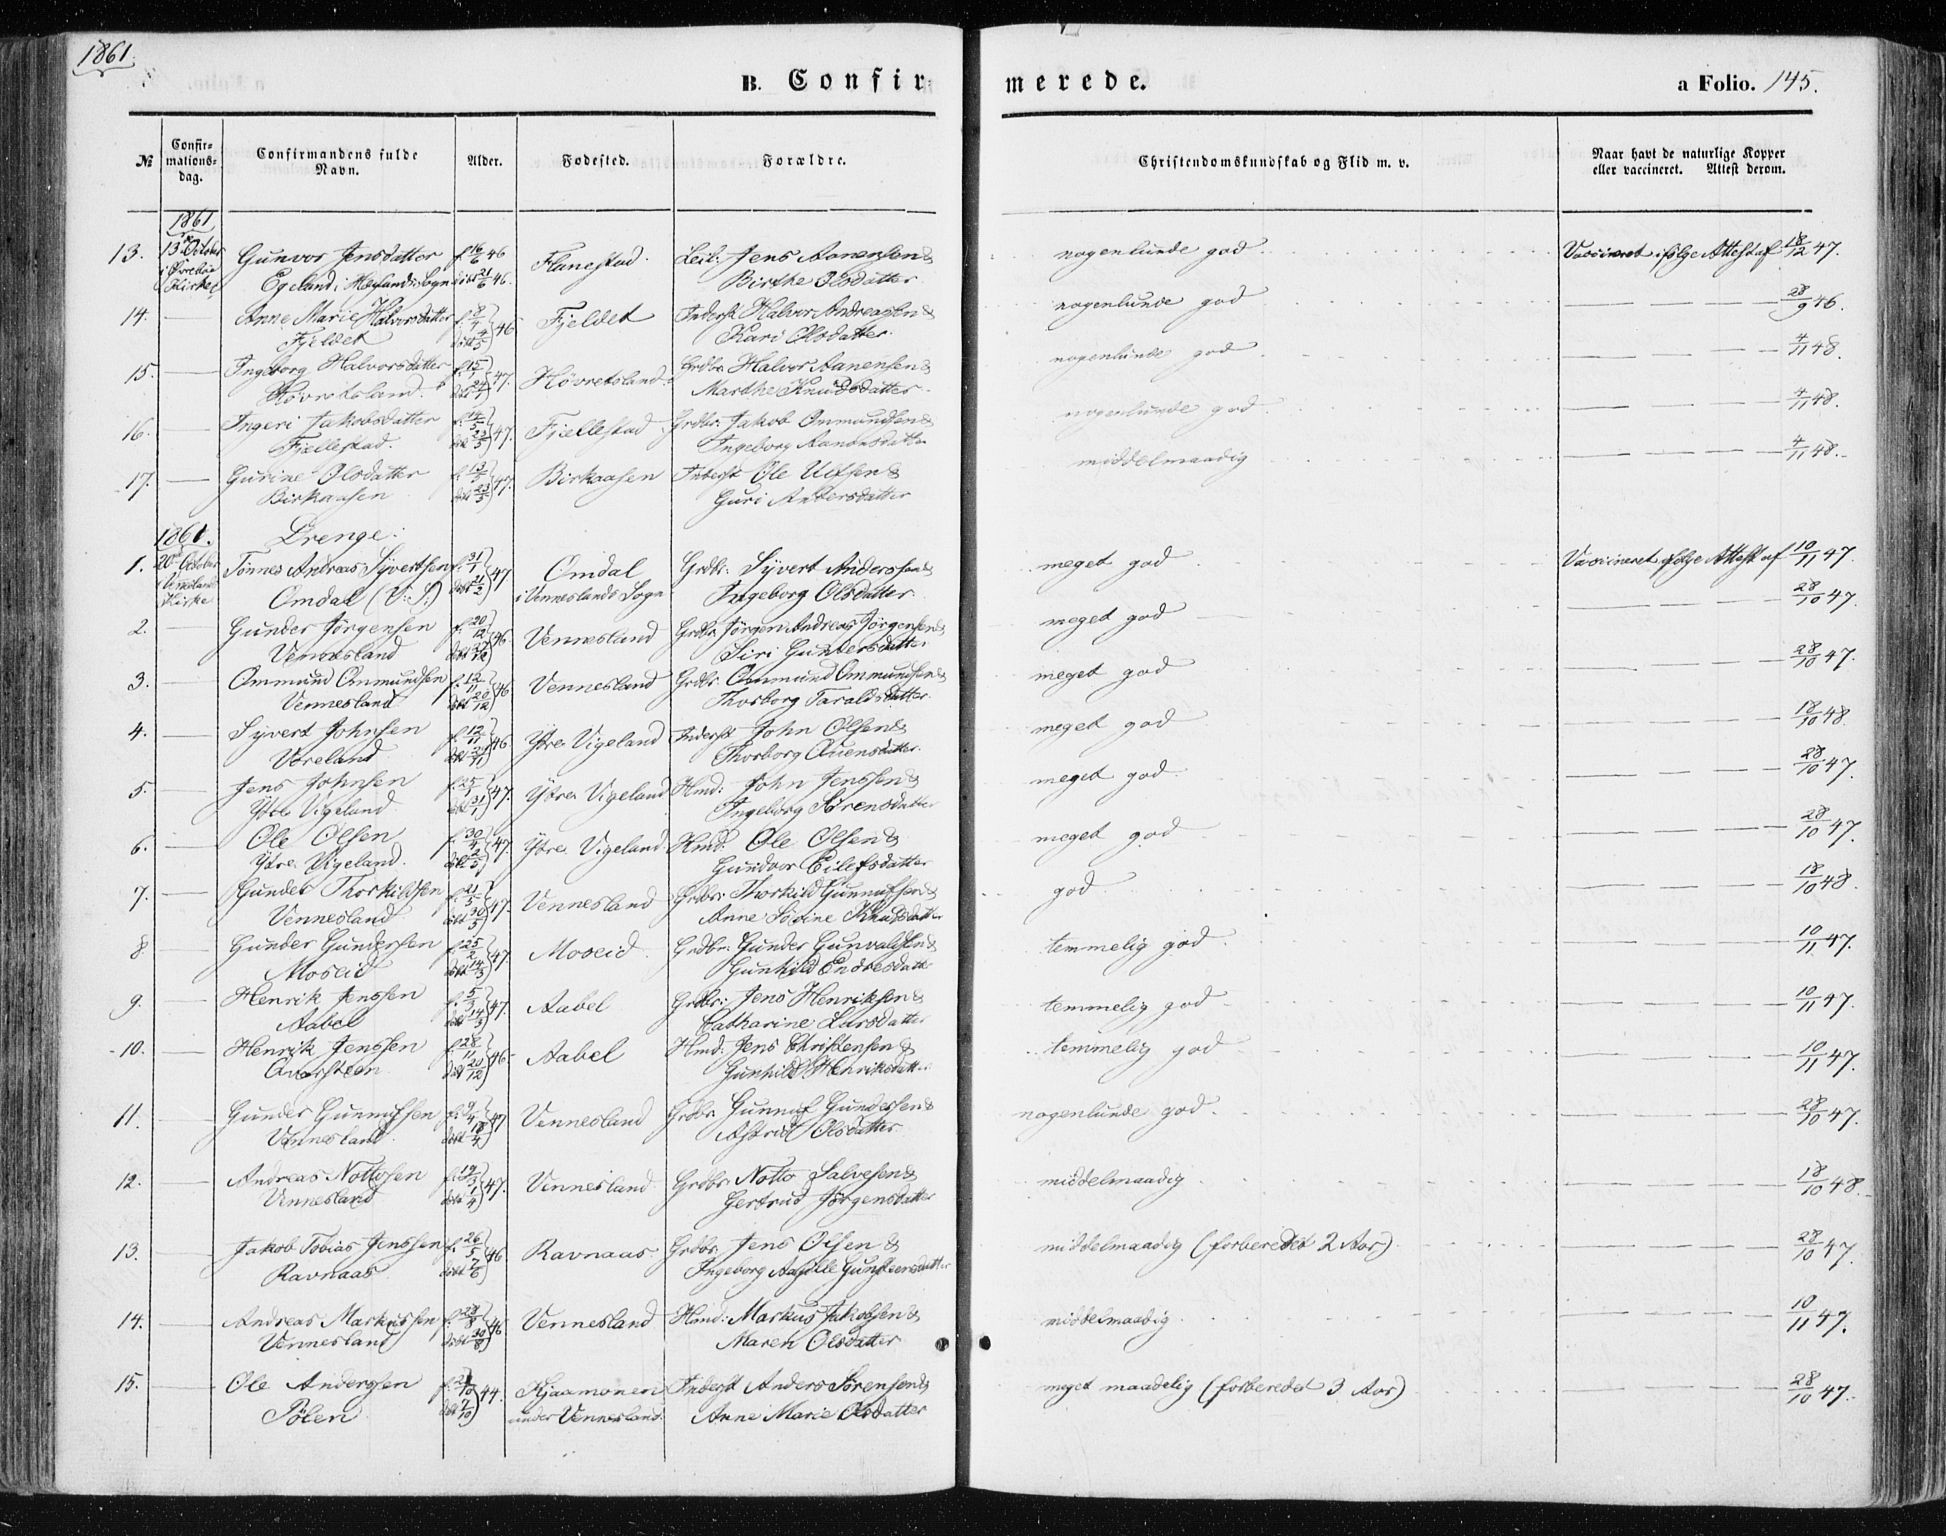 1861.
B. Confirmerede.
a Folio. 145.
№
Confirmations-dag.
Confirmandens fulde Navn.
Alder.
Fødested.
Forældre.
Christendomskundskab og Flid m. v.
Naar havt de naturlige Kopper eller vaccineret. Attest derom.
1861
13. 13de October i Øvrebøe Kirke Gunvor Jensdatter f. 16/6 46 Flanestad. Leil: Jens Aanensen & nogenlunde god Vaccineret ifølge Attest af 18/12 47.
Egeland i Heglands Sogn døbt 21/6 46. Birthe Olsdatter
14. — Anne Marie Halvorsdatter f. 8/4 46 Fjeldet Inderst Halvor Andreassen & nogenlunde god — 28/9 46.
Fjeldet døbt 4/5 Kari Olsdatter.
15. — Ingeborg Halvorsdatter f. 15/1 47. Høvretsland. Grdbr. Halvor Aanensen & nogenlunde god — 4/11 48.
Høvretsland. døbt 24/1 Marthe Knudsdatter.
16. — Ingeri Jakobsdatter f. 14/5 47. Fjellestad Grdbr. Jakob Ommundsen & nogenlunde god — 4/11 48.
Fjellestad. døbt 23/5 Ingeborg Aanonsdatter
17. — Gurine Olsdatter f. 13/5 47. Birkaasen Inderst Ole Uefsen & middelmaadig — 4/11 48.
Birkaasen døbt 23/5 Guri Andersdatter
1861. Drenge:
1. 20de October Vennesland Kirke Tønnes Andreas Syvertsen f. 31/1 47 Omdal Grdbr: Syvert Anderssen & meget god Vaccineret ifølge Attest af 10/11 47.
Omdal (V: S:) døbt 11/2 i Venneslands Sogn Ingeborg Olsdatter
2. — Gunder Jørgensen f. 20/12 46 Vennesland Grdbr. Jørgen Andreas Jørgensen & meget god — 28/10 47.
Vennesland døbt 27/12 Siri Gundersdatter
3. — Ommund Ommundsen f. 12/11 46 Vennesland Grdbr. Ommund Ommundsen & meget god — 28/10 47.
Vennesland døbt 20/12 Thorborg Taraldsdatter.
4. — Syvert Johnsen f. 12/11 46 Ytre Vigeland Inderst John Olsen & meget god — 18/10 48.
Voreland døbt 21/11 Thorborg Auensdatter.
5. — Jens Johnsen f. 25/1 47. Ytre Vigeland Hmd: John Jenssen & meget god — 28/10 47.
Ytre Vigeland døbt 31/1 Ingeborg Sørensdatter
6. — Ole Olsen f. 30/4 47. Ytre Vigeland Hmd. Ole Olsen & meget god — 28/10 47.
Ytre Vigeland. døbt 2/5 Gundvor Eilefsdatter
7. — Gunder Thorkildsen f. 21/5 47. Vennesland Grdbr. Thorkild Gunnufsen & god — 18/10 48.
Vennesland døbt 30/5 Anne Sovine Knudsdatter
8. — Gunder Gundersen f. 25/2 47. Moseid. Grdbr. Gunder Gunvaldsen & temmelig god — 10/11 47.
Moseid døbt 14/3 Gunhild Endresdatter
9. — Henrik Jenssen f. 5/3 47. Aabel Grdbr. Jens Henriksen & temmelig god — 10/11 47.
Aabel døbt 14/3 Catharine Larsdatter
10. — Henrik Jenssen f. 28/11 46 Aabel Hmd: Jens Christensen & temmelig god — 10/11 47.
Qvarstein døbt 20/12 Gunhild Henriksdatter
11. — Gunder Gunnufsen f. 9/4 47 Vennesland Grdbr. Gunnuf Gundersen & nogenlunde god — 28/10 47.
Vennesland. døbt 18/4 Astrid Olsdatter.
12. — Andreas Nottosen f. 19/3 47. Vennesland Grdbr. Notto Salvesen & middelmaadig — 18/10 48.
Vennesland døbt 1/4 Gertrud Jørgensdatter
13. — Jakob Tobias Jenssen f. 26/5 46 Ravnaas. Grdbr. Jens Olsen & middelmaadig (forberedet 2 Aar) — 28/10 47.
Ravnaas døbt 7/6 Ingeborg Gunsteensdatter
14. — Andreas Markussen f. 23/8 46 Vennesland Hmd: Markus Jakobsen & middelmaadig — 10/11 47.
Vennesland døbt 30/8 Maren Olsdatter
15. — Ole Anderssen f. 2/10 44. Kjaamonen Inderst Anders Sørensen & meget maadelig (forberedet 3 Aar) — 28/10 47.
Pølen døbt 7/10 under Vennesland. Anne Marie Olsdatter